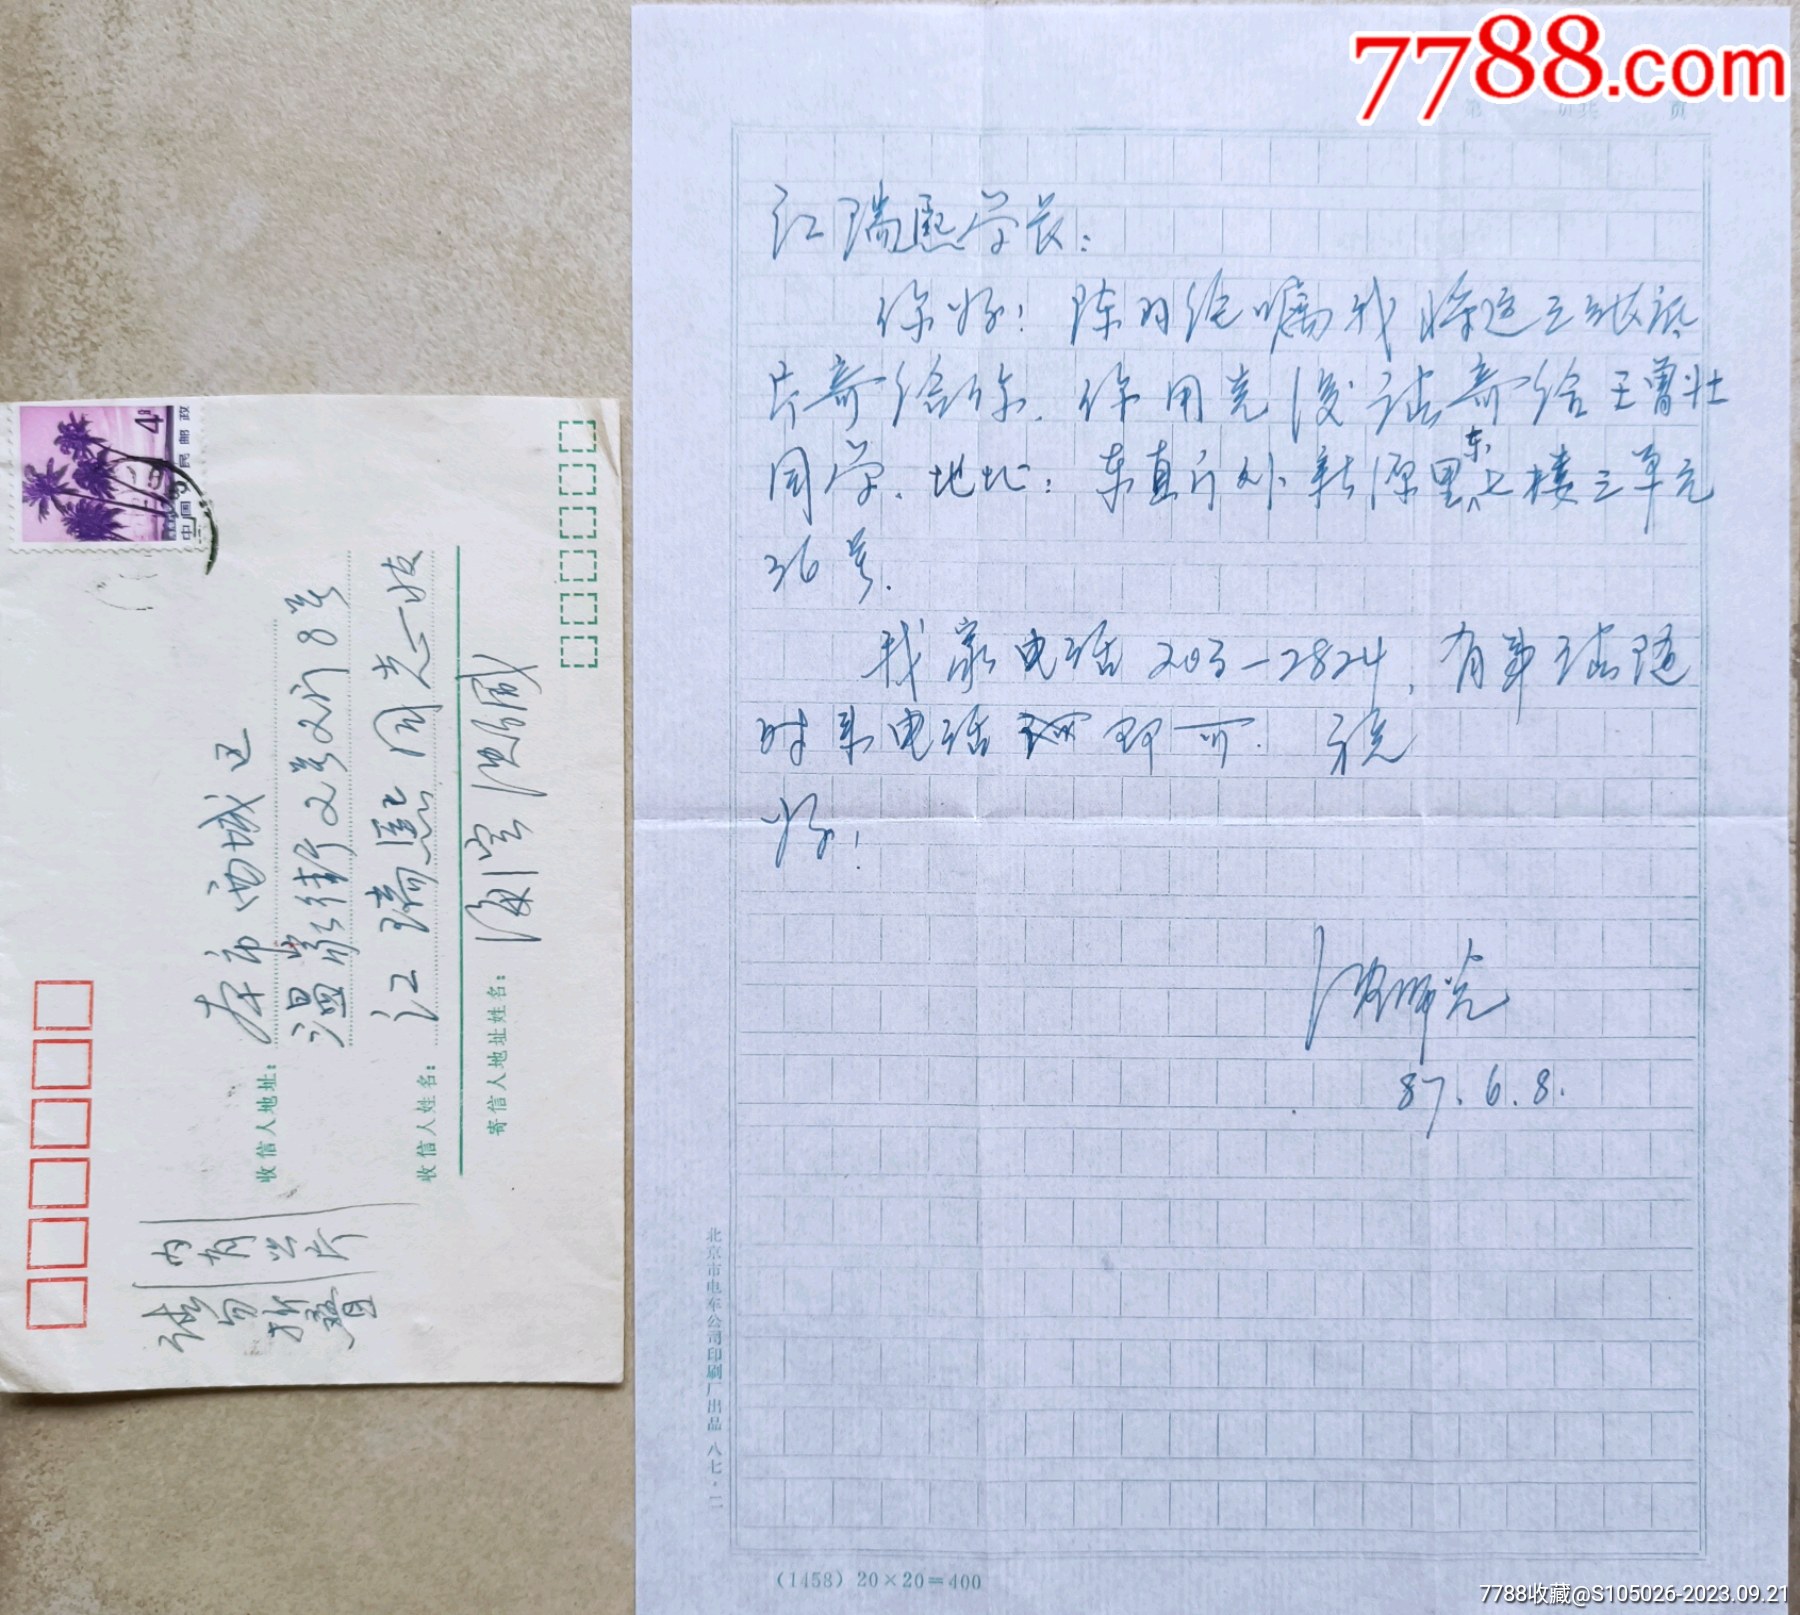 7788.com
第 页共 页
江瑞熙学长:
你好! 陈羽纶嘱我将这三张底
片寄给你. 你用完后请寄给王曾壮
同学. 地址: 东直门外新源里东七楼三单元
36号.
我家电话203-2824, 有事请随
时来电话即可. 祝
好!
87.6.8.
北京市电车公司印刷厂出品 八七·二
(1458) 20×20=400
4分
中国人民邮政
本市西城区
温家街2号2门8号
收信人地址:
江瑞熙同志收
收信人姓名:
海官
寄信人地址姓名:
内有照片
请勿折叠
7788收藏@S105026-2023.09.21